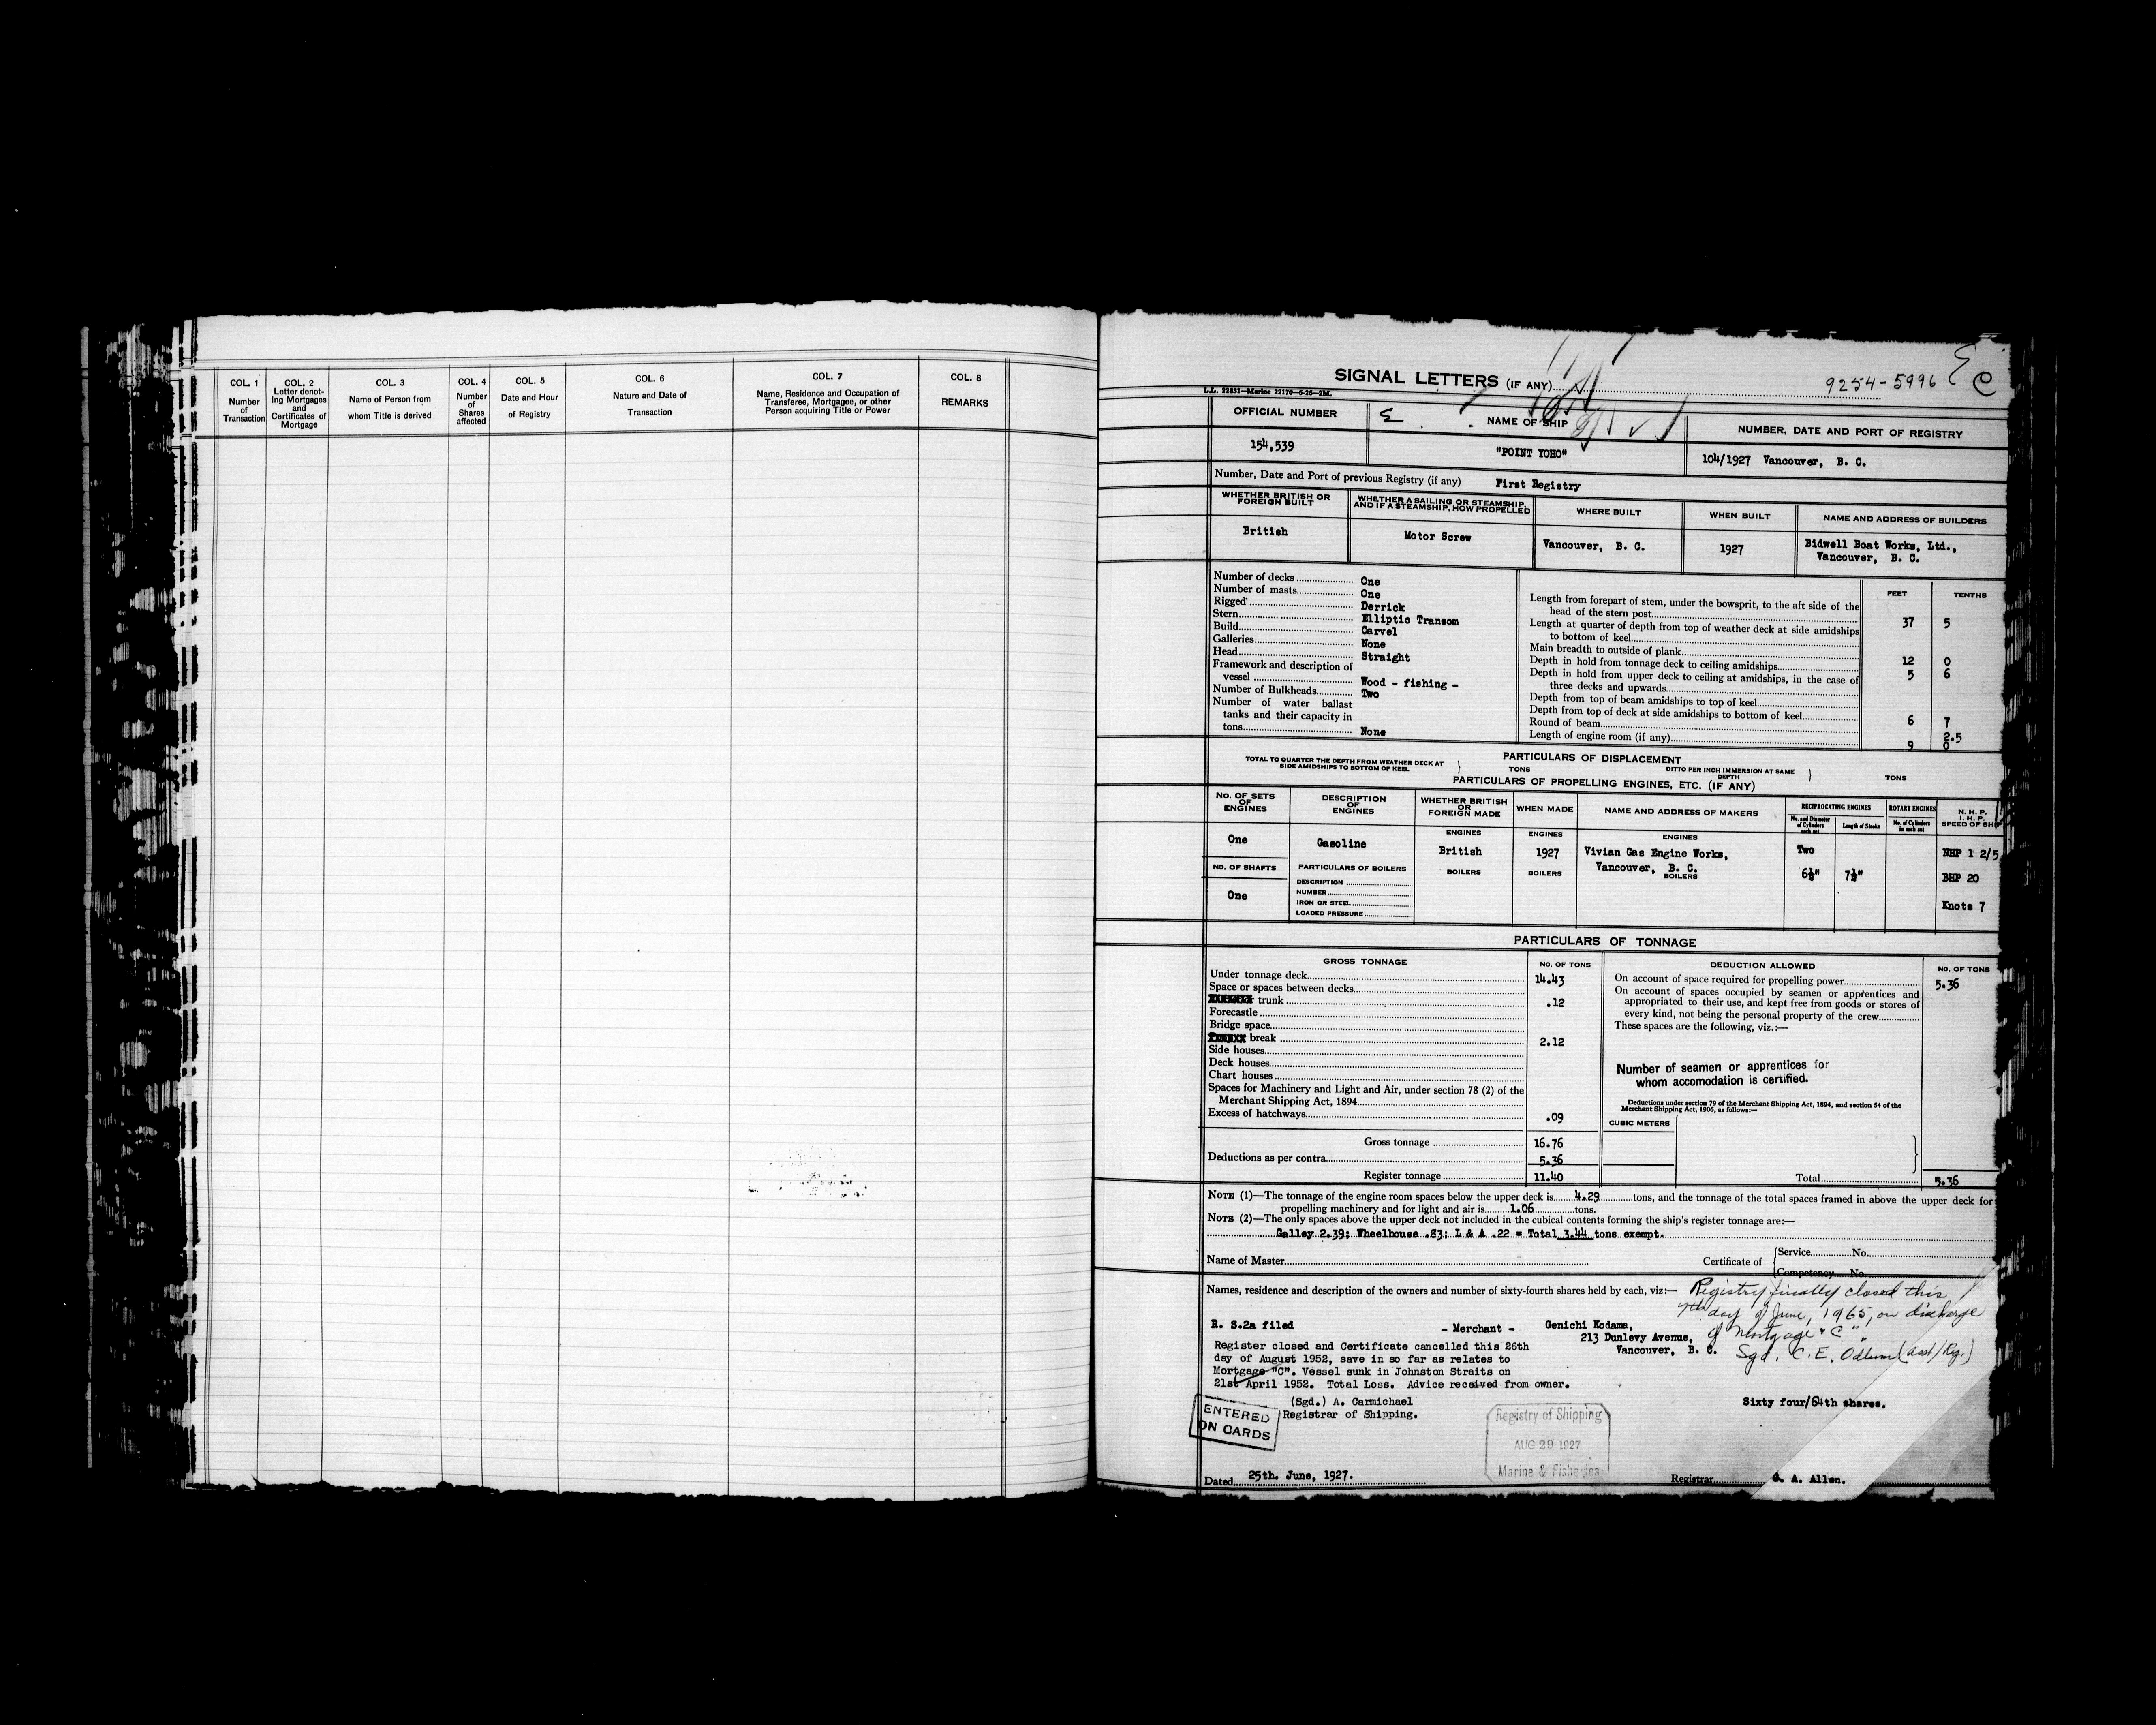 COL. 1
Number
of
Transaction
COL. 2
Letter denot-
ing Mortgages
and
Certificates of
Mortgage
COL. 3
Name of Person from
whom Title is derived
COL. 4
Number
of
Shares
affected
COL. 5
Date and Hour
of Registry
COL. 6
Nature and Date of
Transaction
COL. 7
Name, Residence and Occupation of
Transferee, Mortgagee, or other
Person acquiring Title or Power
COL. 8
REMARKS
SIGNAL LETTERS (IF ANY)
9254-5996
L.L. 22831—Marine 22170—6-26—2M.
OFFICIAL NUMBER
NAME OF SHIP
NUMBER, DATE AND PORT OF REGISTRY
154,539
"POINT YOHO"
104/1927 Vancouver, B. C.
Number, Date and Port of previous Registry (if any) First Registry
WHETHER BRITISH OR
FOREIGN BUILT
WHETHER A SAILING OR STEAMSHIP,
AND IF A STEAMSHIP, HOW PROPELLED
WHERE BUILT
WHEN BUILT
NAME AND ADDRESS OF BUILDERS
British
Motor Screw
Vancouver, B. C.
1927
Bidwell Boat Works, Ltd.,
Vancouver, B. C.
Number of decks One
Number of masts One
Rigged Derrick
Stern Elliptic Transom
Build Carvel
Galleries None
Head Straight
Framework and description of
vessel Wood - fishing -
Number of Bulkheads Two
Number of water ballast
tanks and their capacity in
tons None
FEET TENTHS
Length from forepart of stem, under the bowsprit, to the aft side of the
head of the stern post 37 5
Length at quarter of depth from top of weather deck at side amidships
to bottom of keel
Main breadth to outside of plank 12 0
Depth in hold from tonnage deck to ceiling amidships 5 6
Depth in hold from upper deck to ceiling at amidships, in the case of
three decks and upwards
Depth from top of beam amidships to top of keel
Depth from top of deck at side amidships to bottom of keel 6 7
Round of beam 2.5
Length of engine room (if any) 9 0
PARTICULARS OF DISPLACEMENT
TOTAL TO QUARTER THE DEPTH FROM WEATHER DECK AT
SIDE AMIDSHIPS TO BOTTOM OF KEEL. } TONS
DITTO PER INCH IMMERSION AT SAME
DEPTH } TONS
PARTICULARS OF PROPELLING ENGINES, ETC. (IF ANY)
NO. OF SETS
OF
ENGINES
DESCRIPTION
OF
ENGINES
WHETHER BRITISH
OR
FOREIGN MADE
WHEN MADE
NAME AND ADDRESS OF MAKERS
RECIPROCATING ENGINES
No. and Diameter
of Cylinders
each set
Length of Stroke
ROTARY ENGINES
No. of Cylinders
in each set
N. H. P.
I. H. P.
SPEED OF SHIP
One
Gasoline
ENGINES
British
ENGINES
1927
ENGINES
Vivian Gas Engine Works,
Vancouver, B. C.
Two
6½"
7½"
NHP 1 2/5
BHP 20
Knots 7
NO. OF SHAFTS
One
PARTICULARS OF BOILERS
DESCRIPTION
NUMBER
IRON OR STEEL
LOADED PRESSURE
BOILERS
BOILERS
BOILERS
PARTICULARS OF TONNAGE
GROSS TONNAGE
NO. OF TONS
Under tonnage deck 14.43
Space or spaces between decks
trunk .12
Forecastle
Bridge space
break 2.12
Side houses
Deck houses
Chart houses
Spaces for Machinery and Light and Air, under section 78 (2) of the
Merchant Shipping Act, 1894
Excess of hatchways .09
Gross tonnage 16.76
Deductions as per contra 5.36
Register tonnage 11.40
DEDUCTION ALLOWED
NO. OF TONS
On account of space required for propelling power 5.36
On account of spaces occupied by seamen or apprentices and
appropriated to their use, and kept free from goods or stores of
every kind, not being the personal property of the crew
These spaces are the following, viz.:—
Number of seamen or apprentices for
whom accomodation is certified.
Deductions under section 79 of the Merchant Shipping Act, 1894, and section 54 of the
Merchant Shipping Act, 1906, as follows:—
CUBIC METERS
Total 5.36
NOTE (1)—The tonnage of the engine room spaces below the upper deck is 4.29 tons, and the tonnage of the total spaces framed in above the upper deck for
propelling machinery and for light and air is 1.06 tons.
NOTE (2)—The only spaces above the upper deck not included in the cubical contents forming the ship's register tonnage are:—
Galley 2.39; Wheelhouse .83; L & A .22 = Total 3.44 tons exempt.
Name of Master
Certificate of
Service No.
Competency No.
Names, residence and description of the owners and number of sixty-fourth shares held by each, viz:—
Registry finally closed this
7th day of June, 1965, on discharge
of Mortgage "C".
Sgd. C. E. Odlum (Asst/Reg.)
R. S.2a filed
- Merchant -
Genichi Kodama,
213 Dunlevy Avenue,
Vancouver, B. C.
Register closed and Certificate cancelled this 26th
day of August 1952, save in so far as relates to
Mortgage "C". Vessel sunk in Johnston Straits on
21st April 1952. Total Loss. Advice received from owner.
(Sgd.) A. Carmichael
Registrar of Shipping.
Sixty four/64th shares.
ENTERED
ON CARDS
Registry of Shipping
AUG 29 1927
Marine & Fisheries
Dated 25th. June, 1927.
Registrar A. Allen.